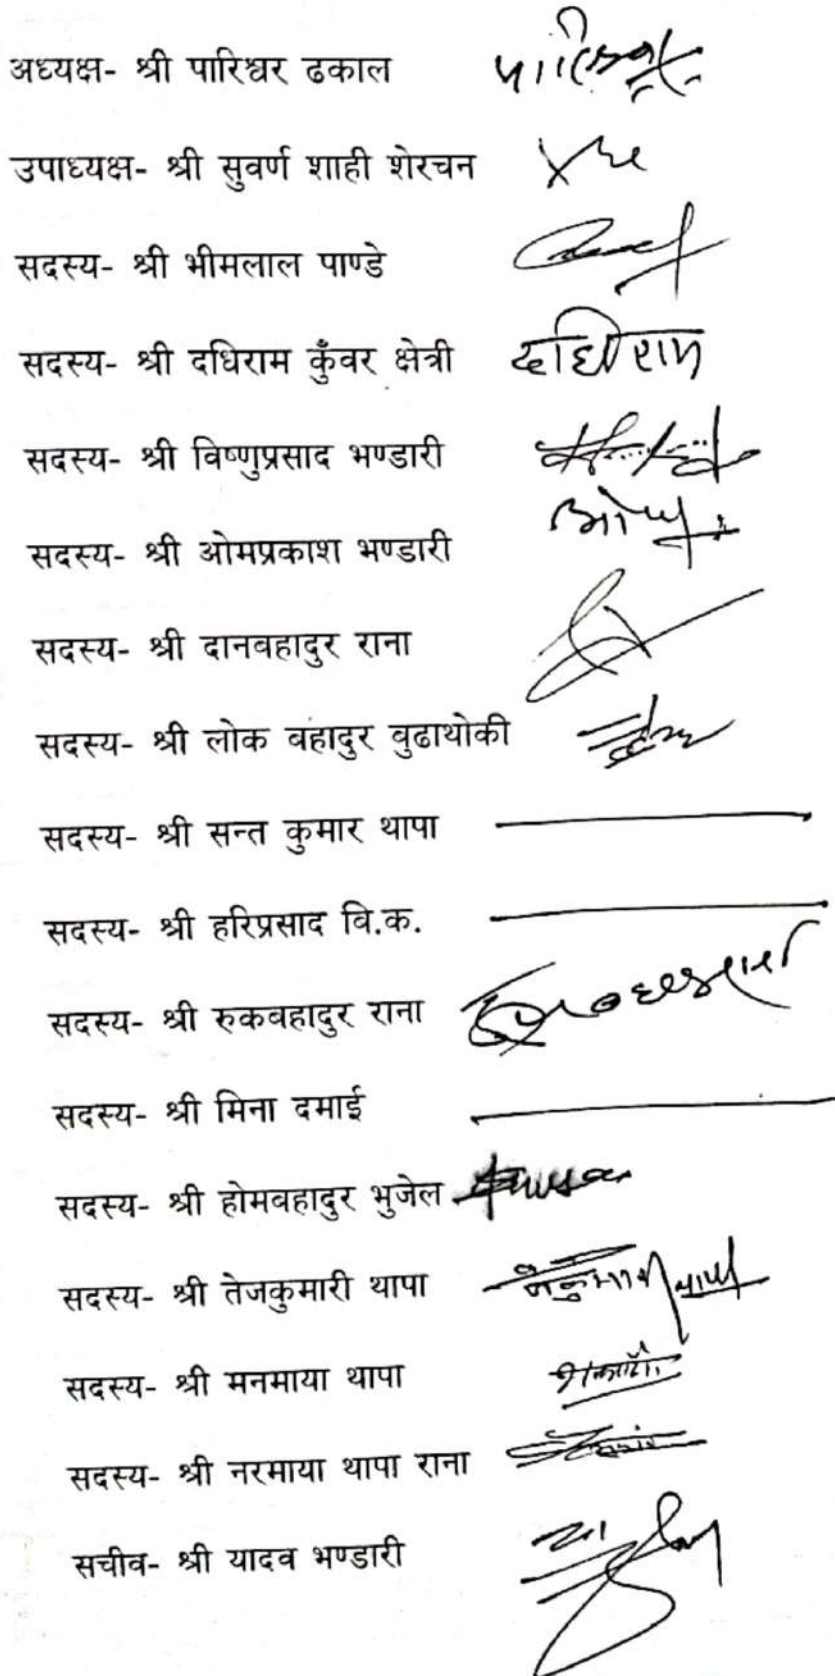 अध्यक्ष- श्री पारिश्वर ढकाल
उपाध्यक्ष- श्री सुवर्ण शाही शेरचन
सदस्य- श्री भीमलाल पाण्डे
सदस्य- श्री दधिराम कुँवर क्षेत्री दधिराम
सदस्य- श्री विष्णुप्रसाद भण्डारी
सदस्य- श्री ओमप्रकाश भण्डारी
सदस्य- श्री दानबहादुर राना
सदस्य- श्री लोक बहादुर बुढाथोकी
सदस्य- श्री सन्त कुमार थापा
सदस्य- श्री हरिप्रसाद वि.क.
सदस्य- श्री रुकबहादुर राना
सदस्य- श्री मिना दमाई
सदस्य- श्री होमबहादुर भुजेल
सदस्य- श्री तेजकुमारी थापा
सदस्य- श्री मनमाया थापा
सदस्य- श्री नरमाया थापा राना
सचीव- श्री यादव भण्डारी